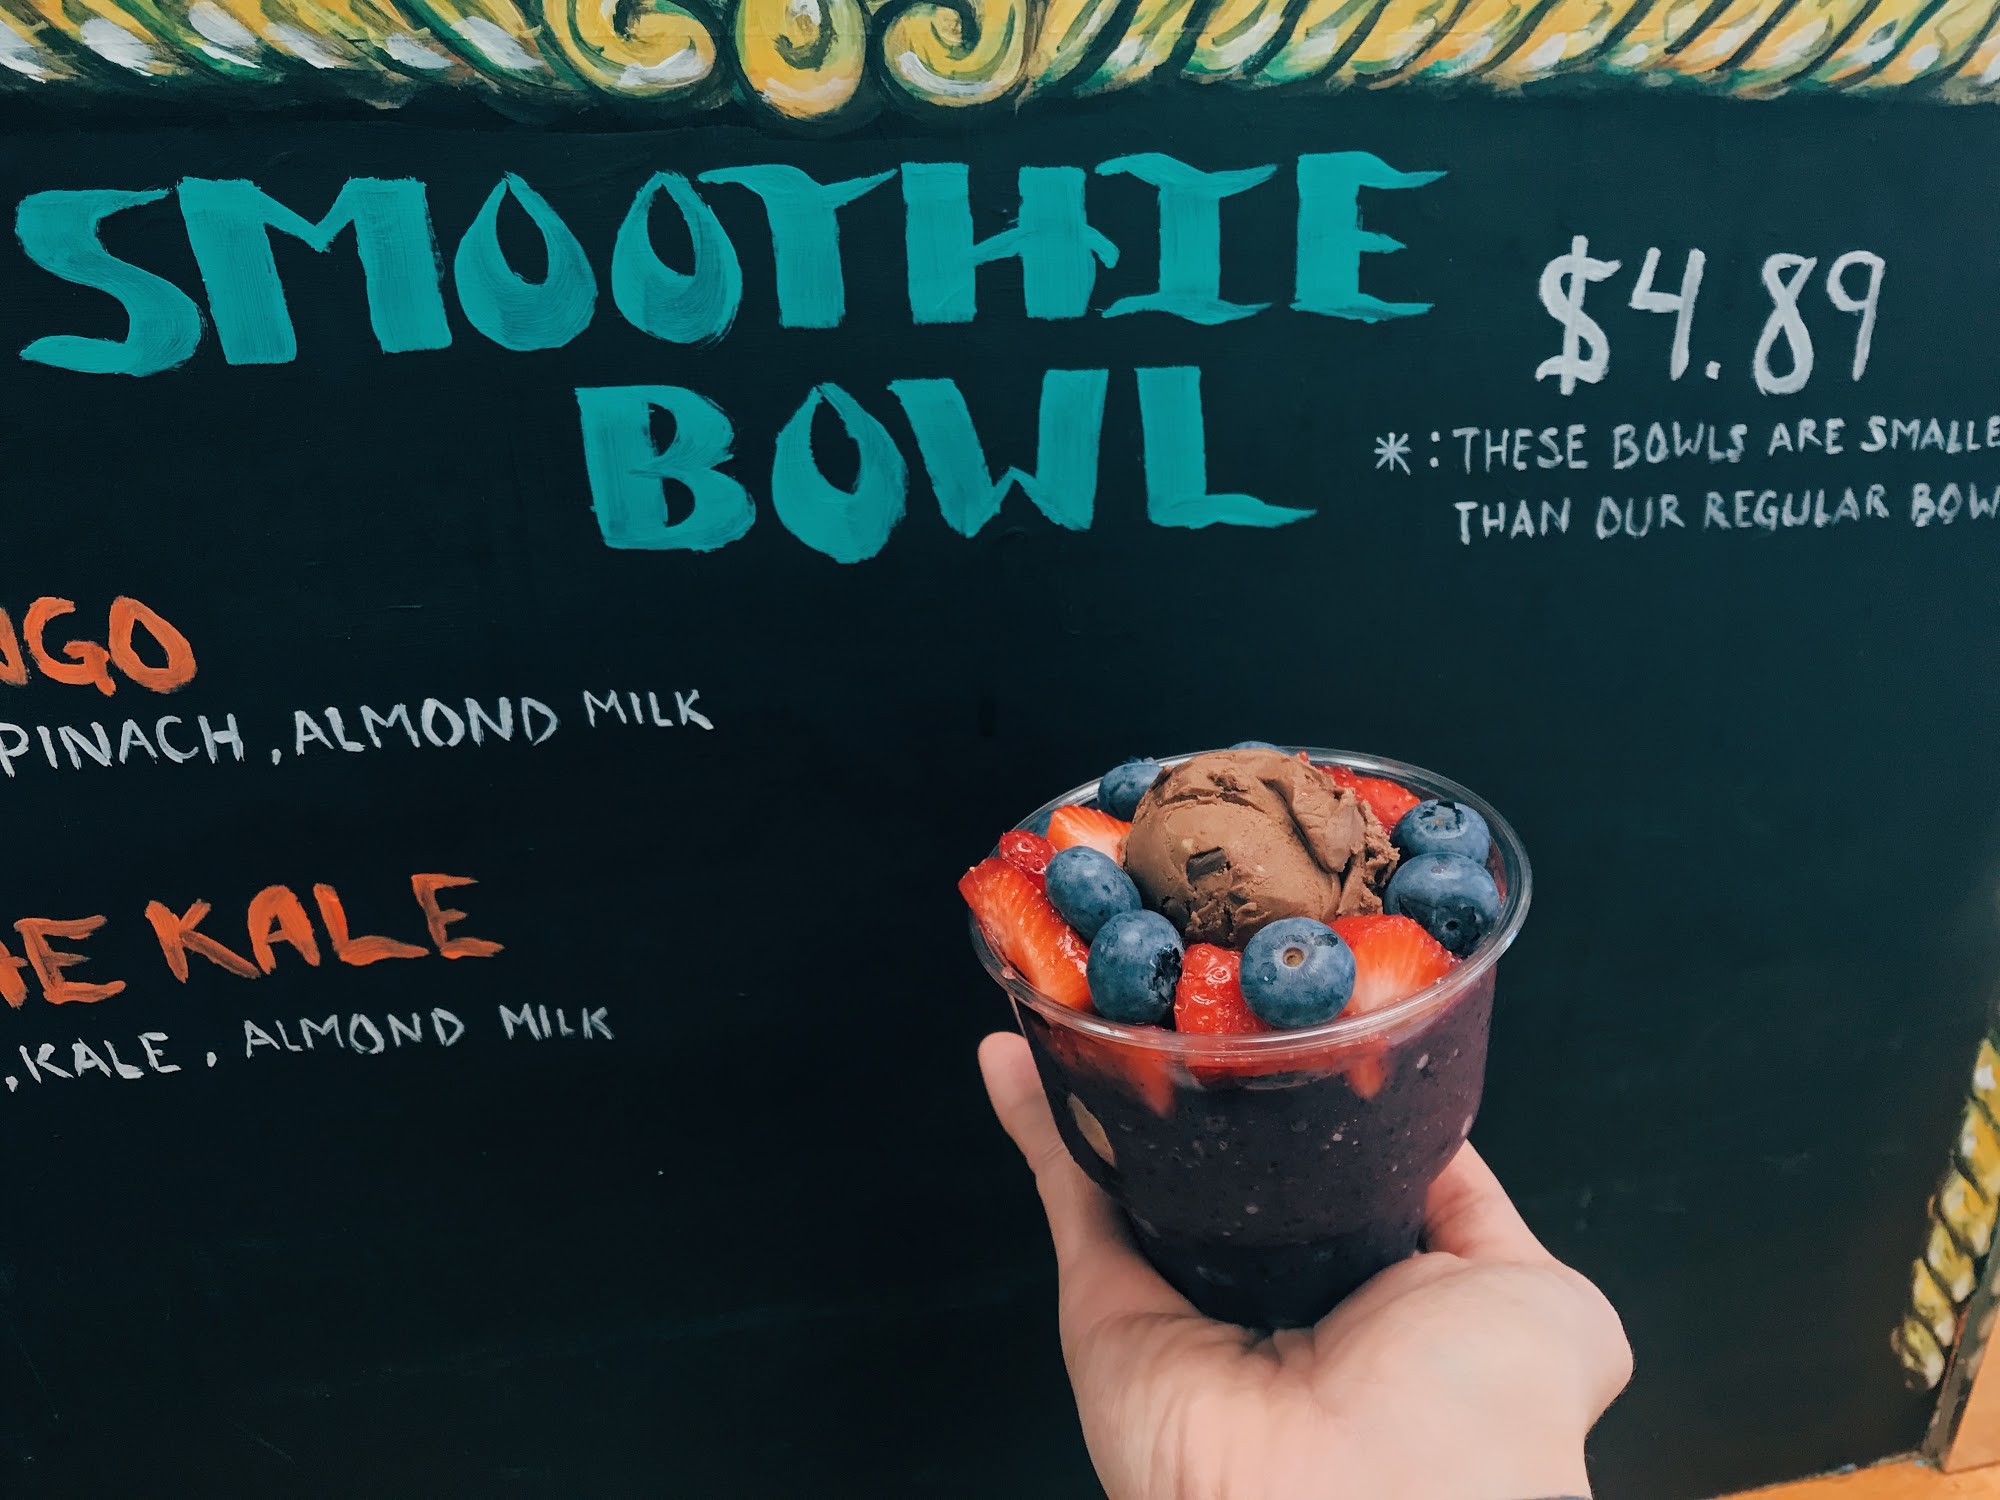 SMOOTHIE
BOWL
$4.89
*: THESE BOWLS ARE SMALLE
THAN OUR REGULAR BOW
NGO
PINACH, ALMOND MILK
HE KALE
, KALE, ALMOND MILK